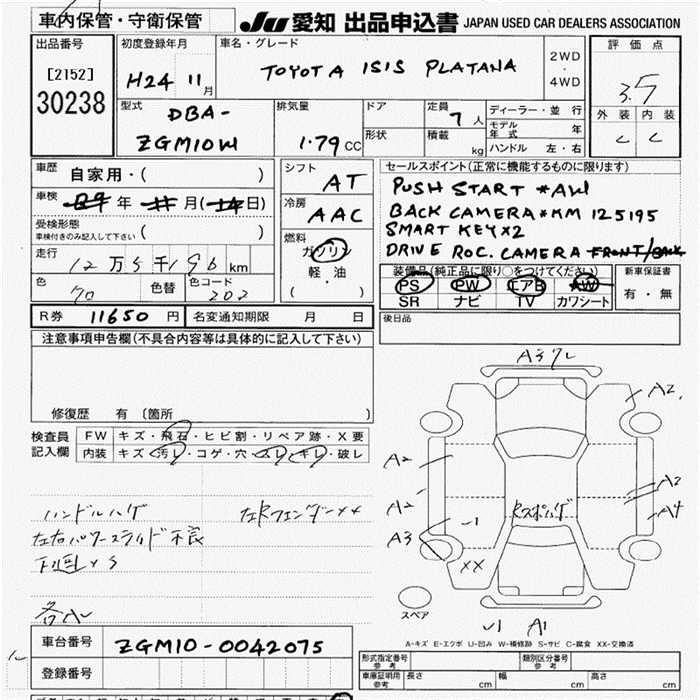 車内保管・守衛保管
JU 愛知 出品申込書 JAPAN USED CAR DEALERS ASSOCIATION
出品番号
[2152]
30238
初度登録年月
H24 11月
車名・グレード
TOYOTA ISIS PLATANA
2WD
・
4WD
評価点
3.5
外装 内装
C C
型式
DBA-
ZGM10W
排気量
1.79 CC
ドア
形状
定員
7人
積載
kg
ディーラー・並行
モデル年式 年
ハンドル 左・右
車歴
自家用・( )
車検
年 月( 日)
受検形態
車検付きのみ記入して下さい ( )
走行
12万5千196 km
色
70
色替
色コード
202
シフト
AT
冷房
AAC
燃料
ガソリン
軽・油
( )
セールスポイント(正常に機能するものに限ります)
PUSH START *AW
BACK CAMERA*MM 125195
SMART KEY×2
DRIVE ROC. CAMERA FRONT/BACK
装備品(純正品に限り○をつけてください)
PS PW エアB AW
SR ナビ TV カワシート
新車保証書
有・無
R券 11650 円
名変通知期限 月 日
後日品
注意事項申告欄(不具合内容等は具体的に記入して下さい)
修復歴 有 〔箇所 〕
検査員
記入欄
FW キズ・飛石・ヒビ割・リペア跡・X要
内装 キズ・汚レ・コゲ・穴・スレ・キレ・破レ
ハンドルハゲ
左右パワースライド不良
下廻×S
A2
A2
A2
A2
A3
A4
XX
A1
スペア
A-キズ E-エクボ U-凹み W-補修跡 S-サビ C-腐食 XX-交換済
車台番号
ZGM10-0042075
登録番号
形式指定番号
参考
類別区分番号
参考
車庫証明用
参考
長さ cm
幅 cm
高さ cm